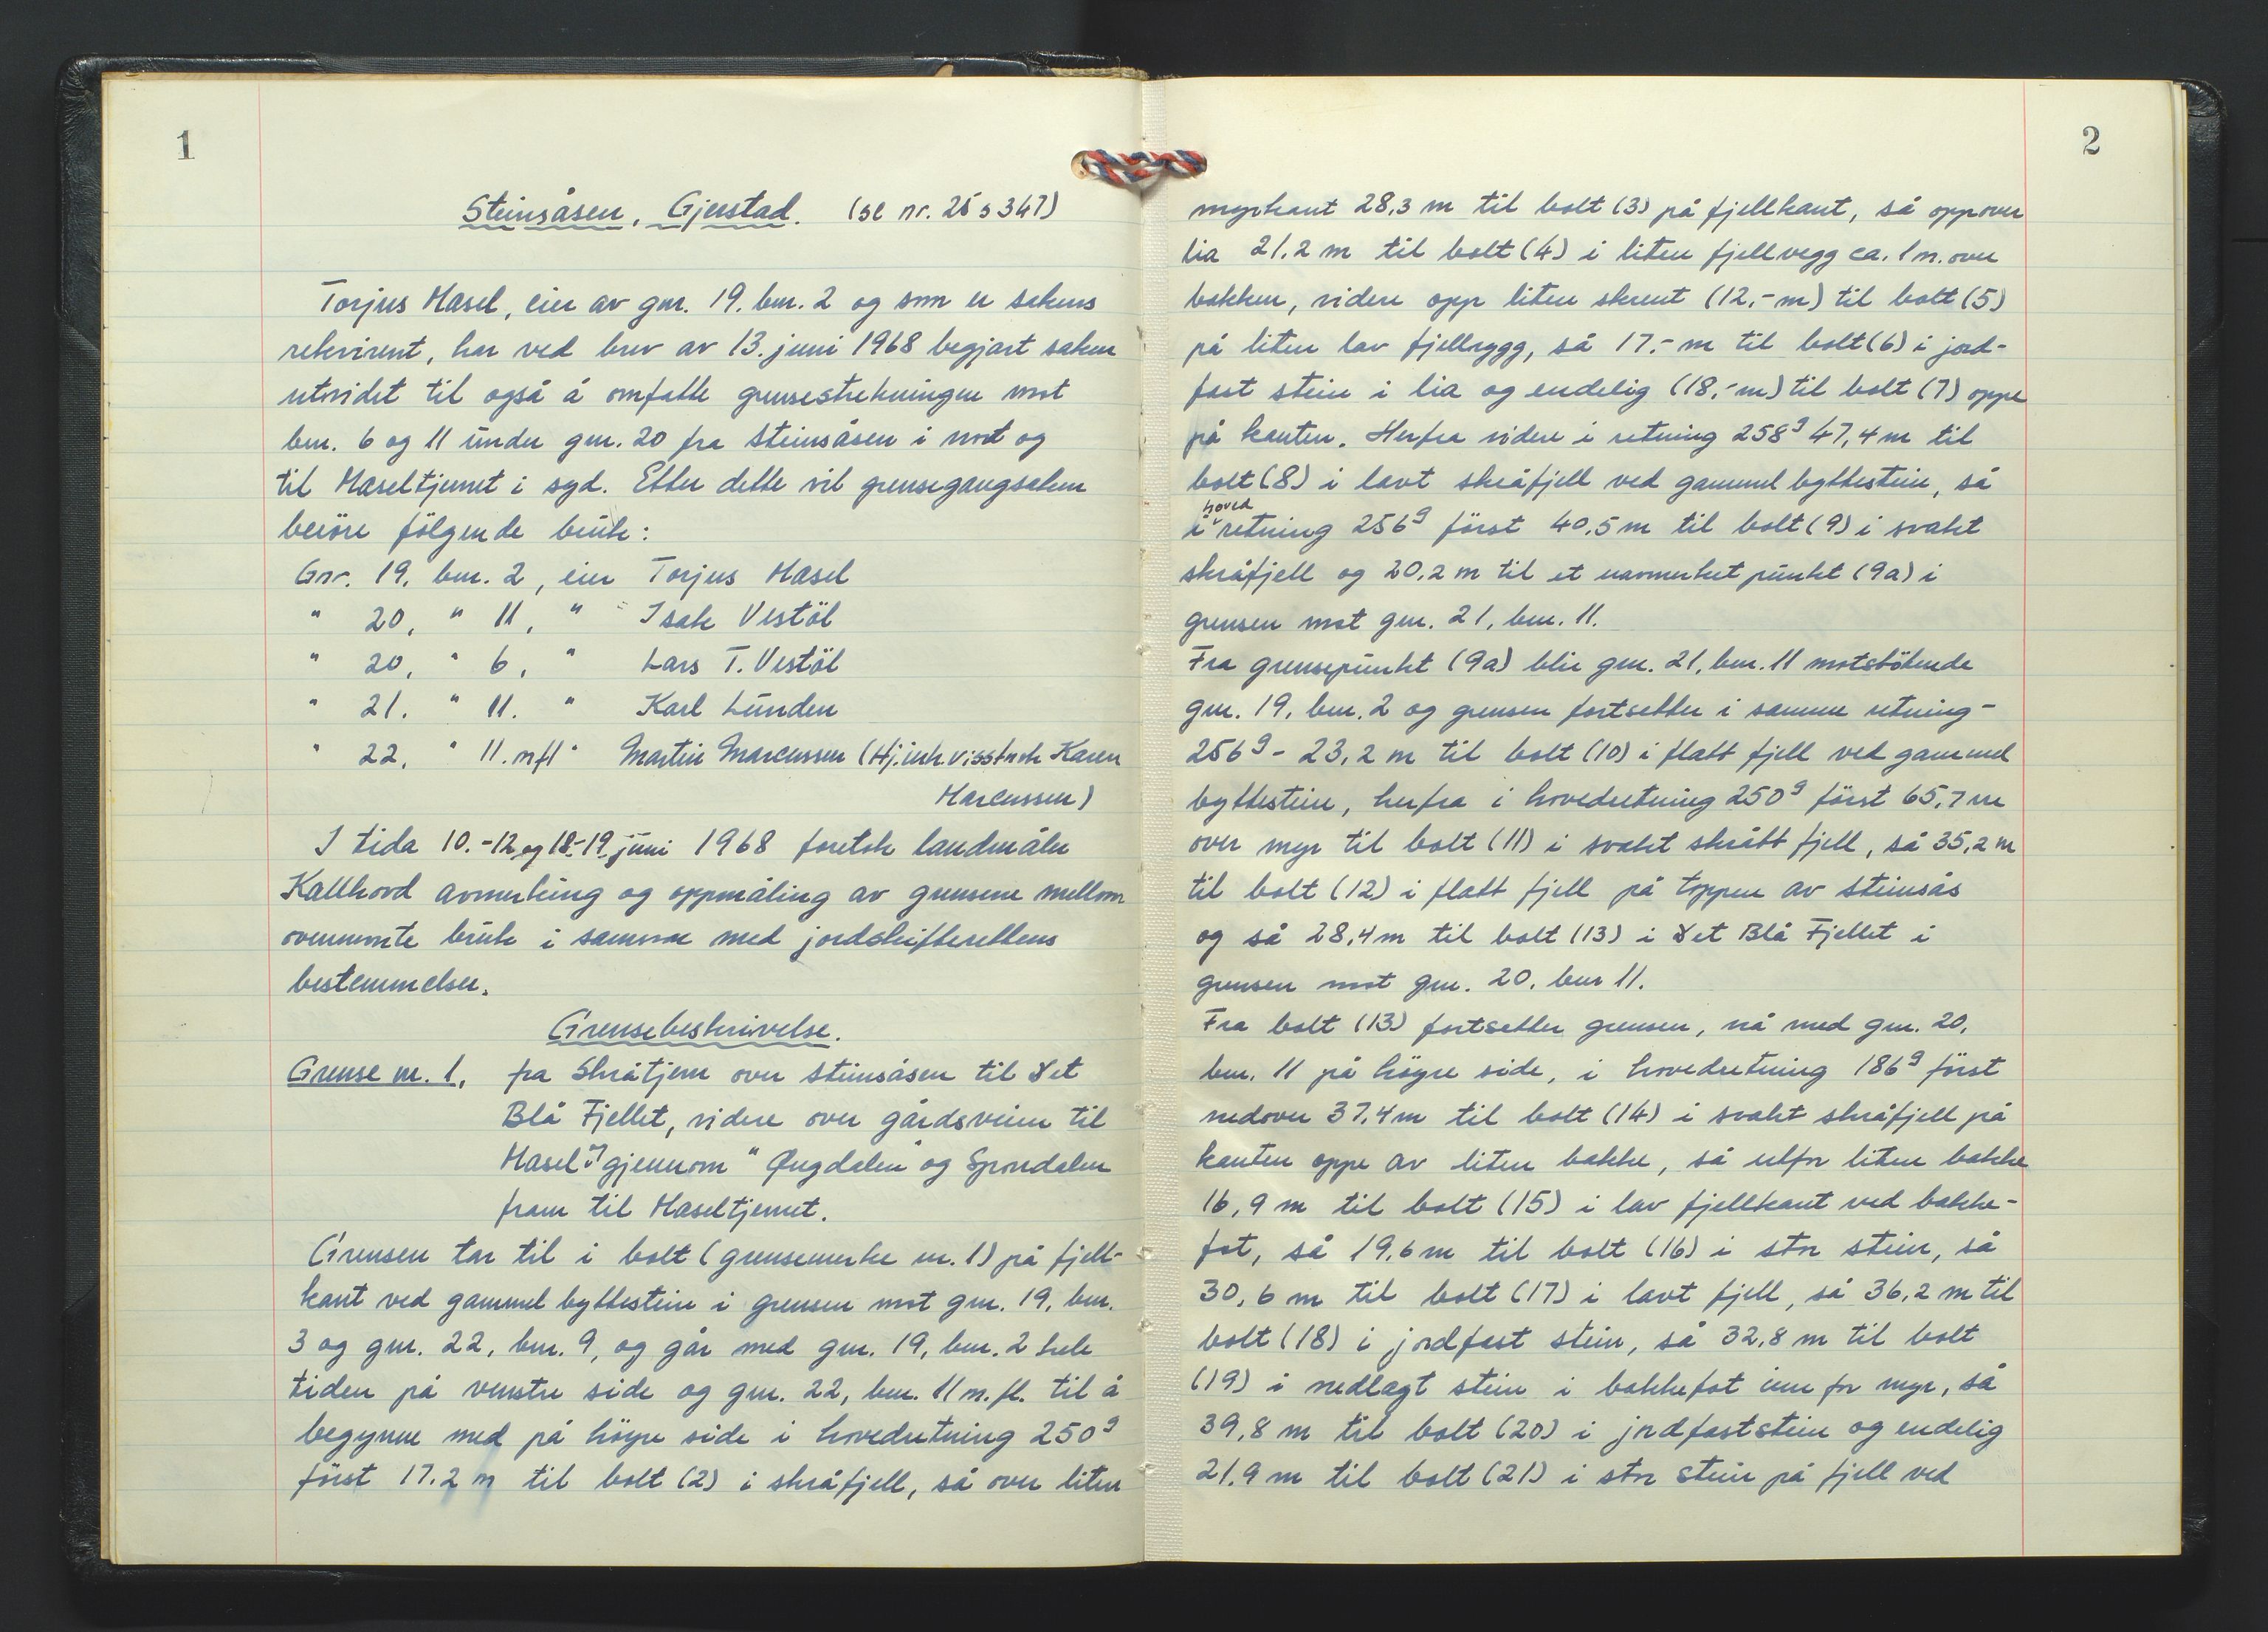 1
Steinsåsen, Gjerstad. (se nr. 25 s 347)
Torjus Masel, eier av gnr. 19. bnr. 2 og som er sakens
rekvirent, har ved brev av 13. juni 1968 begjært saken
utvidet til også å omfatte grensestrekningen mot
bnr. 6 og 11 under gnr. 20 fra Steinsåsen i nord og
til Maseltjernet i syd. Etter dette vil grensegangsaken
beröre fölgende bruk:
Gnr. 19, bnr. 2, eier Torjus Masel
" 20, " 11, " Isak Vestöl
" 20, " 6, " Lars T. Vestöl
" 21. " 11. " Karl Lunden
" 22, " 11. mfl " Martin Marcussen (Hj. enk. v. Karen
Marcussen)
I tida 10.-12 og 18-19. juni 1968 foretok landmåler
Kallhovd avmerking og oppmåling av grensene mellom
ovennevnte bruk i samsvar med jordskifterettens
bestemmelser.
Grensebeskrivelse.
Grense nr. 1, fra Skråtjern over Steinsåsen til Det
Blå Fjellet, videre over gårdsveien til
Masel og gjennom "Øngdalen og Sprondalen
fram til Maseltjernet.
Grensen tar til i bolt (grensemerke nr. 1) på fjell-
kant ved gammel byttestein i grensen mot gnr. 19, bnr.
3 og gnr. 22, bnr. 9, og går med gnr. 19, bnr. 2 hele
tiden på venstre side og gnr. 22, bnr. 11 m. fl. til å
begynne med på höyre side i hovedretning 250g
först 17.2 m til bolt (2) i skråfjell, så over liten
2
myrkant 28,3 m til bolt (3) på fjellkant, så oppover
lia 21,2 m til bolt (4) i liten fjellvegg ca. 1 m. over
bakken, videre opp liten skrent (12,- m) til bolt (5)
på liten lav fjellrygg, så 17.- m til bolt (6) i jord-
fast stein i lia og endelig (18,- m) til bolt (7) oppe
på kanten. Herfra videre i retning 258g 47,4 m til
bolt (8) i lavt skråfjell ved gammel byttestein, så
i hovedretning 256g först 40,5 m til bolt (9) i svakt
skråfjell og 20,2 m til et uavmerket punkt (9a) i
grensen mot gnr. 21, bnr. 11.
Fra grensepunkt (9a) blir gnr. 21, bnr. 11 motstötende
gnr. 19, bnr. 2 og grensen fortsetter i samme retning -
256g - 23,2 m til bolt (10) i flatt fjell ved gammel
byttestein, herfra i hovedretning 250g först 65,7 m
over myr til bolt (11) i svakt skrått fjell, så 35,2 m
til bolt (12) i flatt fjell på toppen av Steinsås
og så 28,4 m til bolt (13) i Det Blå Fjellet i
grensen mot gnr. 20, bnr 11.
Fra bolt (13) fortsetter grensen, nå med gnr. 20,
bnr. 11 på höyre side, i hovedretning 186g först
nedover 37,4 m til bolt (14) i svakt skråfjell på
kanten oppe av liten bakke, så utfor liten bakke
16,9 m til bolt (15) i lav fjellkant ved bakke-
fot, så 19,6 m til bolt (16) i stor stein, så
30,6 m til bolt (17) i lavt fjell, så 36,2 m til
bolt (18) i jordfast stein, så 32,8 m til bolt
(19) i nedlagt stein i bakkefot inn for myr, så
39,8 m til bolt (20) i jordfast stein og endelig
21,9 m til bolt (21) i stor stein på fjell ved